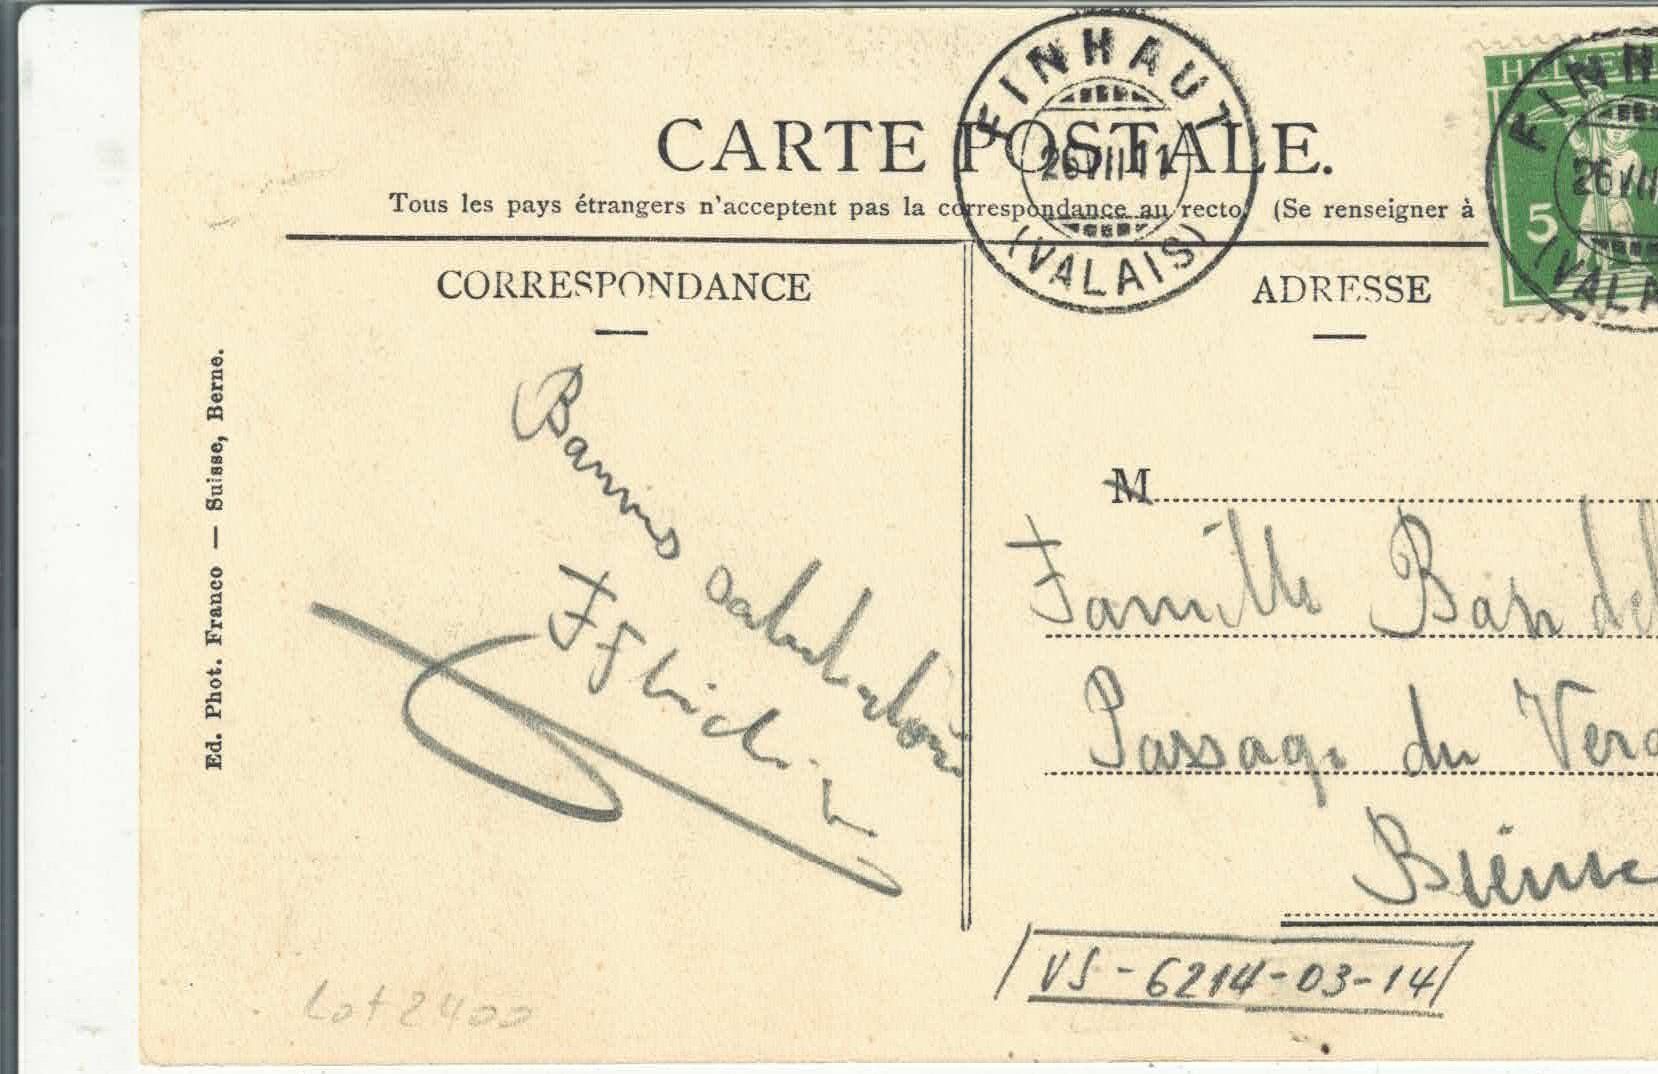 CARTE POSTALE.
Tous les pays étrangers n'acceptent pas la correspondance au recto. (Se renseigner à
FINHAUT
26 VII 11
(VALAIS)
HELVE
5
FINH
26 VII
(VALA
CORRESPONDANCE
ADRESSE
Ed. Phot. Franco — Suisse, Berne.
Bonnes salutations
M
Famille
Passage du
Bienne
VS-6214-03-14
Lot 2400